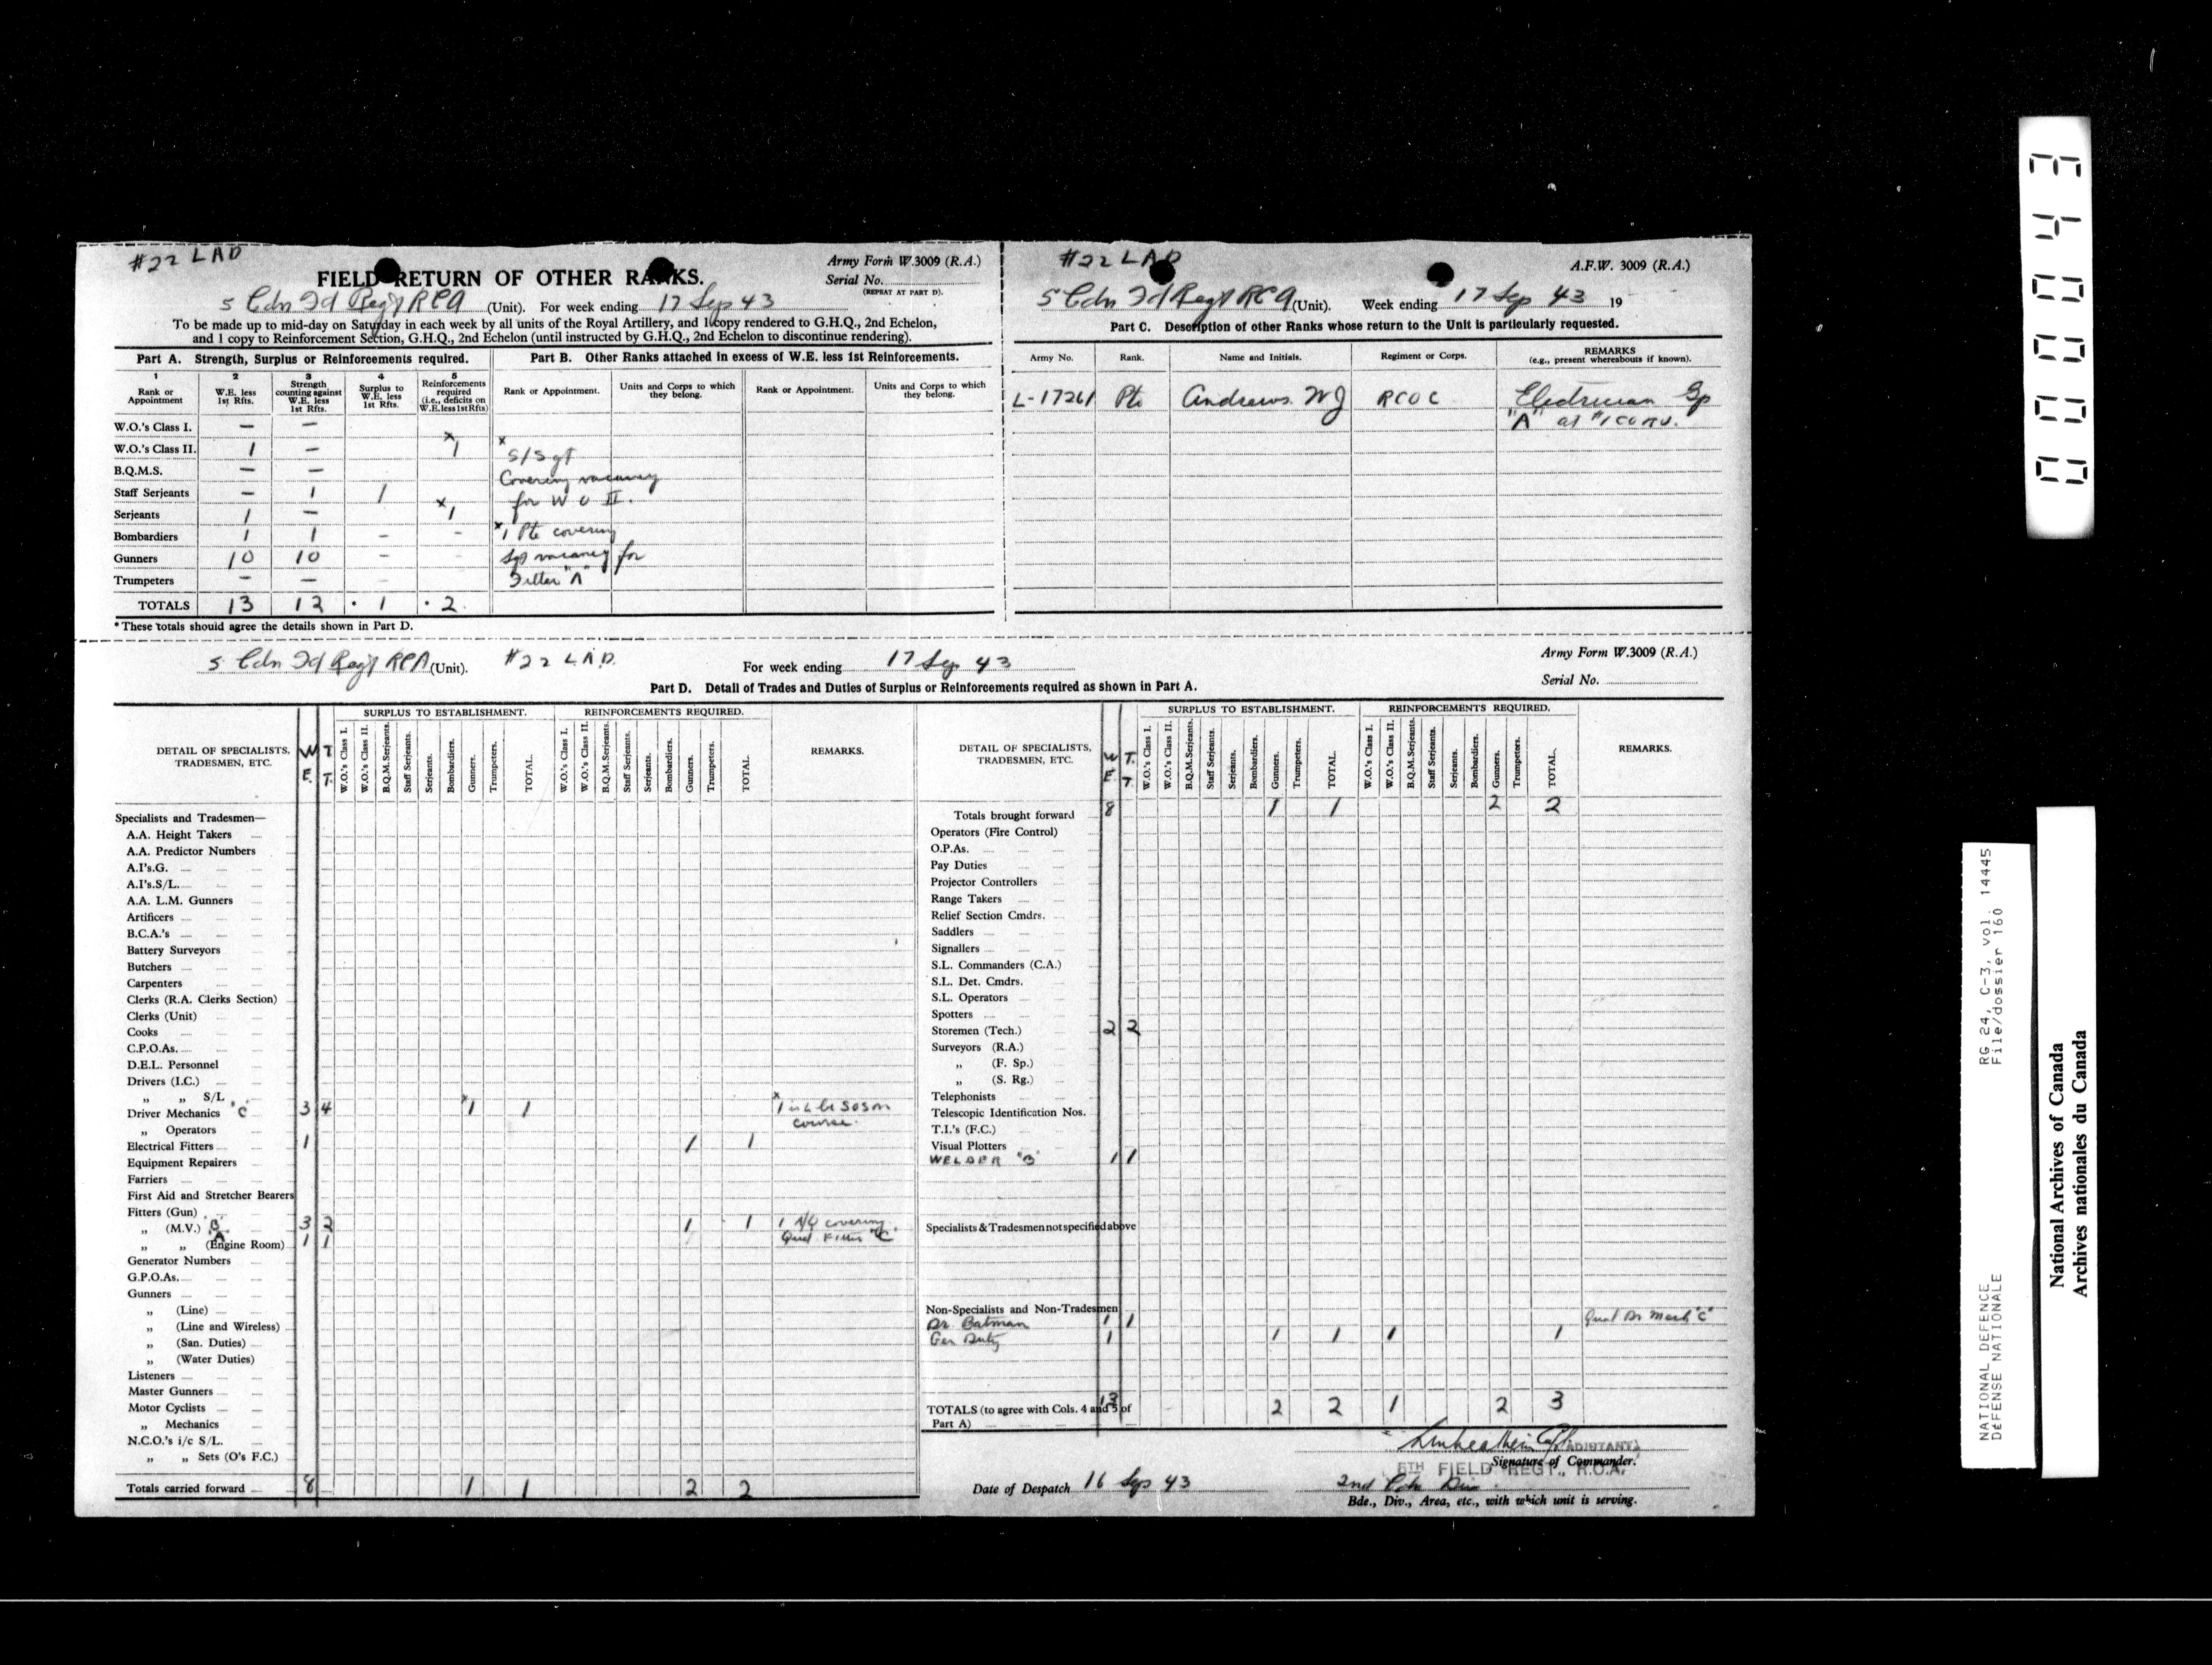 #22 LAD
FIELD RETURN OF OTHER RANKS.
Army Form W.3009 (R.A.)
Serial No.
(REPEAT AT PART D).
5 Cdn Fd Regt RCA (Unit). For week ending 17 Sep 43
To be made up to mid-day on Saturday in each week by all units of the Royal Artillery, and 1 copy rendered to G.H.Q., 2nd Echelon,
and 1 copy to Reinforcement Section, G.H.Q., 2nd Echelon (until instructed by G.H.Q., 2nd Echelon to discontinue rendering).
Part A. Strength, Surplus or Reinforcements required.
1 2 3 4 5
Rank or Appointment
W.E. less 1st Rfts.
Strength counting against W.E. less 1st Rfts.
Surplus to W.E. less 1st Rfts.
Reinforcements required (i.e., deficits on W.E. less 1st Rfts)
W.O.'s Class I. — —
W.O.'s Class II. 1 — x 1
B.Q.M.S. — —
Staff Serjeants — 1 1
Serjeants 1 — x 1
Bombardiers 1 1 - -
Gunners 10 10 - -
Trumpeters — — -
TOTALS 13 12 · 1 · 2
*These totals should agree the details shown in Part D.
Part B. Other Ranks attached in excess of W.E. less 1st Reinforcements.
Rank or Appointment.
Units and Corps to which they belong.
Rank or Appointment.
Units and Corps to which they belong.
x
S/Sgt
Covering vacancy
for W O II.
x 1 Pte covering
Sgt vacancy for
Fitter "A"
#22 LAD
A.F.W. 3009 (R.A.)
5 Cdn Fd Regt RCA (Unit). Week ending 17 Sep 43 19
Part C. Description of other Ranks whose return to the Unit is particularly requested.
Army No.
Rank.
Name and Initials.
Regiment or Corps.
REMARKS
(e.g., present whereabouts if known).
L-17261 Pte Andrews WJ RCOC Electrician Gp
"A" at #1
5 Cdn Fd Regt RCA (Unit). #22 L.A.D. For week ending 17 Sep 43
Army Form W.3009 (R.A.)
Serial No.
Part D. Detail of Trades and Duties of Surplus or Reinforcements required as shown in Part A.
DETAIL OF SPECIALISTS, TRADESMEN, ETC.
W E.
T. T.
SURPLUS TO ESTABLISHMENT.
W.O.'s Class I.
W.O.'s Class II.
B.Q.M.Serjeants.
Staff Serjeants.
Serjeants.
Bombardiers.
Gunners.
Trumpeters.
TOTAL.
REINFORCEMENTS REQUIRED.
W.O.'s Class I.
W.O.'s Class II.
B.Q.M.Serjeants.
Staff Serjeants.
Serjeants.
Bombardiers.
Gunners.
Trumpeters.
TOTAL
REMARKS.
Specialists and Tradesmen—
A.A. Height Takers
A.A. Predictor Numbers
A.I's.G.
A.I's.S/L.
A.A. L.M. Gunners
Artificers
B.C.A.'s
Battery Surveyors
Butchers
Carpenters
Clerks (R.A. Clerks Section)
Clerks (Unit)
Cooks
C.P.O.As.
D.E.L. Personnel
Drivers (I.C.)
„ „ S/L
Driver Mechanics "C" 3 4 x 1 1 x 1
course.
„ Operators
Electrical Fitters 1 1 1
Equipment Repairers
Farriers
First Aid and Stretcher Bearers
Fitters (Gun)
„ (M.V.) "B" 3 2 1 1 1 covering
„ „ (Engine Room) "A" 1 1 Qual Fitter "C"
Generator Numbers
G.P.O.As.
Gunners
„ (Line)
„ (Line and Wireless)
„ (San. Duties)
„ (Water Duties)
Listeners
Master Gunners
Motor Cyclists
„ Mechanics
N.C.O.'s i/c S/L.
„ „ Sets (O's F.C.)
Totals carried forward 8 1 1 2 2
DETAIL OF SPECIALISTS, TRADESMEN, ETC.
W E.
T. T.
SURPLUS TO ESTABLISHMENT.
W.O.'s Class I.
W.O.'s Class II.
B.Q.M.Serjeants.
Staff Serjeants.
Serjeants.
Bombardiers.
Gunners.
Trumpeters.
TOTAL.
REINFORCEMENTS REQUIRED.
W.O.'s Class I.
W.O.'s Class II.
B.Q.M.Serjeants.
Staff Serjeants.
Serjeants.
Bombardiers.
Gunners.
Trumpeters.
TOTAL.
REMARKS.
Totals brought forward 8 1 1 2 2
Operators (Fire Control)
O.P.As.
Pay Duties
Projector Controllers
Range Takers
Relief Section Cmdrs.
Saddlers
Signallers
S.L. Commanders (C.A.)
S.L. Det. Cmdrs.
S.L. Operators
Spotters
Storemen (Tech.) 2 2
Surveyors (R.A.)
„ (F. Sp.)
„ (S. Rg.)
Telephonists
Telescopic Identification Nos.
T.I.'s (F.C.)
Visual Plotters
WELDER "B" 1 1
Specialists & Tradesmen not specified above
Non-Specialists and Non-Tradesmen
Dr. Batman 1 1 Qual Dr Mech "C"
Gen Duty 1 1 1 1 1
TOTALS (to agree with Cols. 4 and 5 of Part A) 13 2 2 1 2 3
Capt (ADJUTANT)
Signature of Commander.
5TH FIELD REGT., R.C.A.
Date of Despatch 16 Sep 43
2nd Cdn Div
Bde., Div., Area, etc., with which unit is serving.
000043
RG 24, C-3, vol. 14445
File/dossier 160
NATIONAL DEFENCE
DEFENSE NATIONALE
National Archives of Canada
Archives nationales du Canada